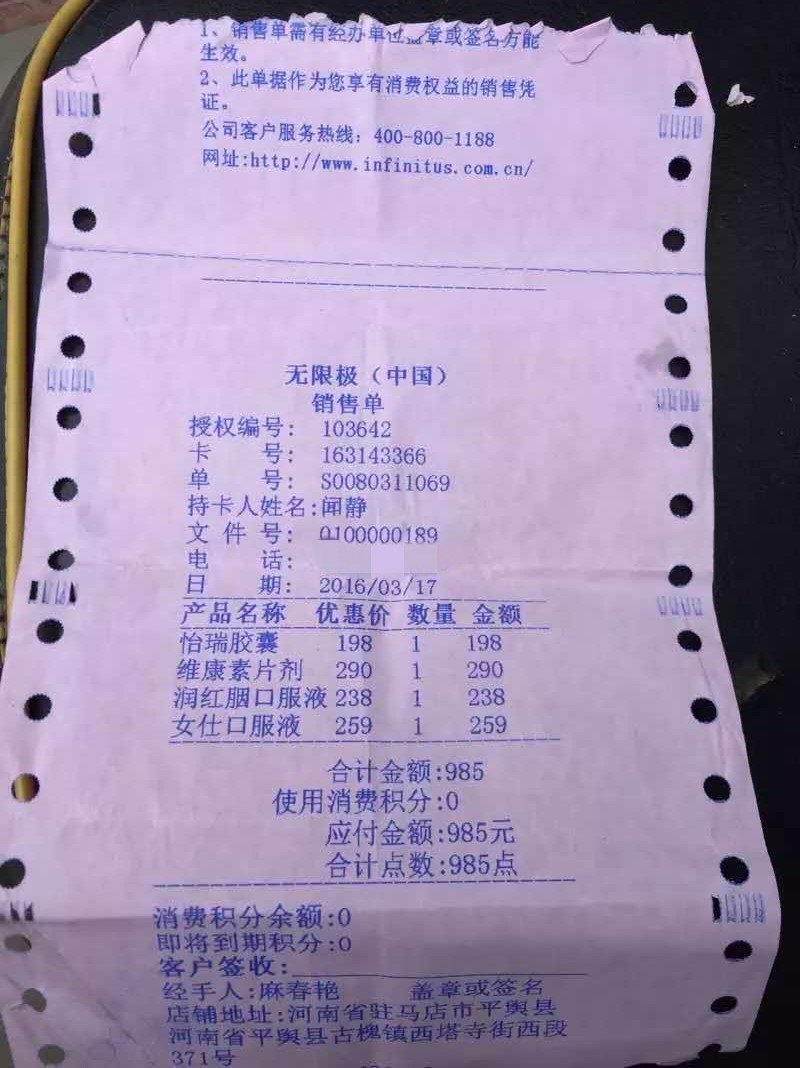 1、销售单需有经办单位盖章或签名方能
生效。
2、此单据作为您享有消费权益的销售凭
证。
公司客户服务热线：400-800-1188
网址:http://www.infinitus.com.cn/
无限极（中国）
销售单
授权编号： 103642
卡 号： 163143366
单 号： S0080311069
持卡人姓名:闻静
文 件 号： 0100000189
电 话：
日 期： 2016/03/17
产品名称 优惠价 数量 金额
怡瑞胶囊 198 1 198
维康素片剂 290 1 290
润红胭口服液 238 1 238
女仕口服液 259 1 259
合计金额:985
使用消费积分:0
应付金额:985元
合计点数:985点
消费积分余额:0
即将到期积分:0
客户签收:
经手人:麻春艳 盖章或签名
店铺地址:河南省驻马店市平舆县
河南省平舆县古槐镇西塔寺街西段
371号